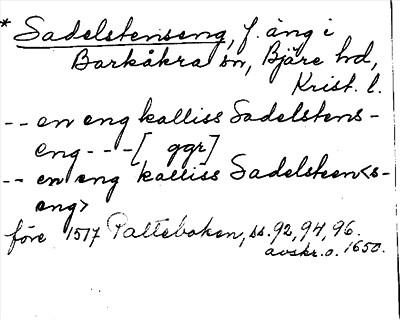 * Sadelstenseng, f. äng i
Barkåkra sn, Bjäre hd,
Krist. l.
-- en eng kalliss Sadelstens-
eng - - -[ ggr]
-- en eng kalliss Sadelsteen<s-
eng>
före 1517 Palteboken, ss. 92, 94, 96.
avskr. o. 1650.